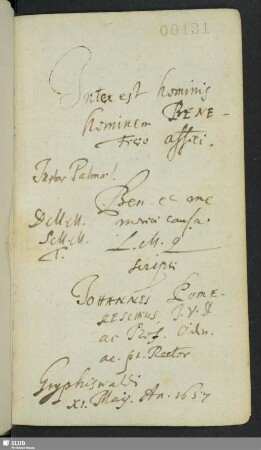 00131
Interest hominis
hominem BENE-
ficio affici.
Instar Palmæ!
Ben. ec me
D.M.M. moriæ causa
S.M.M. L. M. q
T. scripsi
JOHANNES POME-
RESCHIUS, J.V.D
ac Prof. Ordn.
ac. pt. Rector
Gryphiswaldi
XI. Maij. An. 1657
SLUB